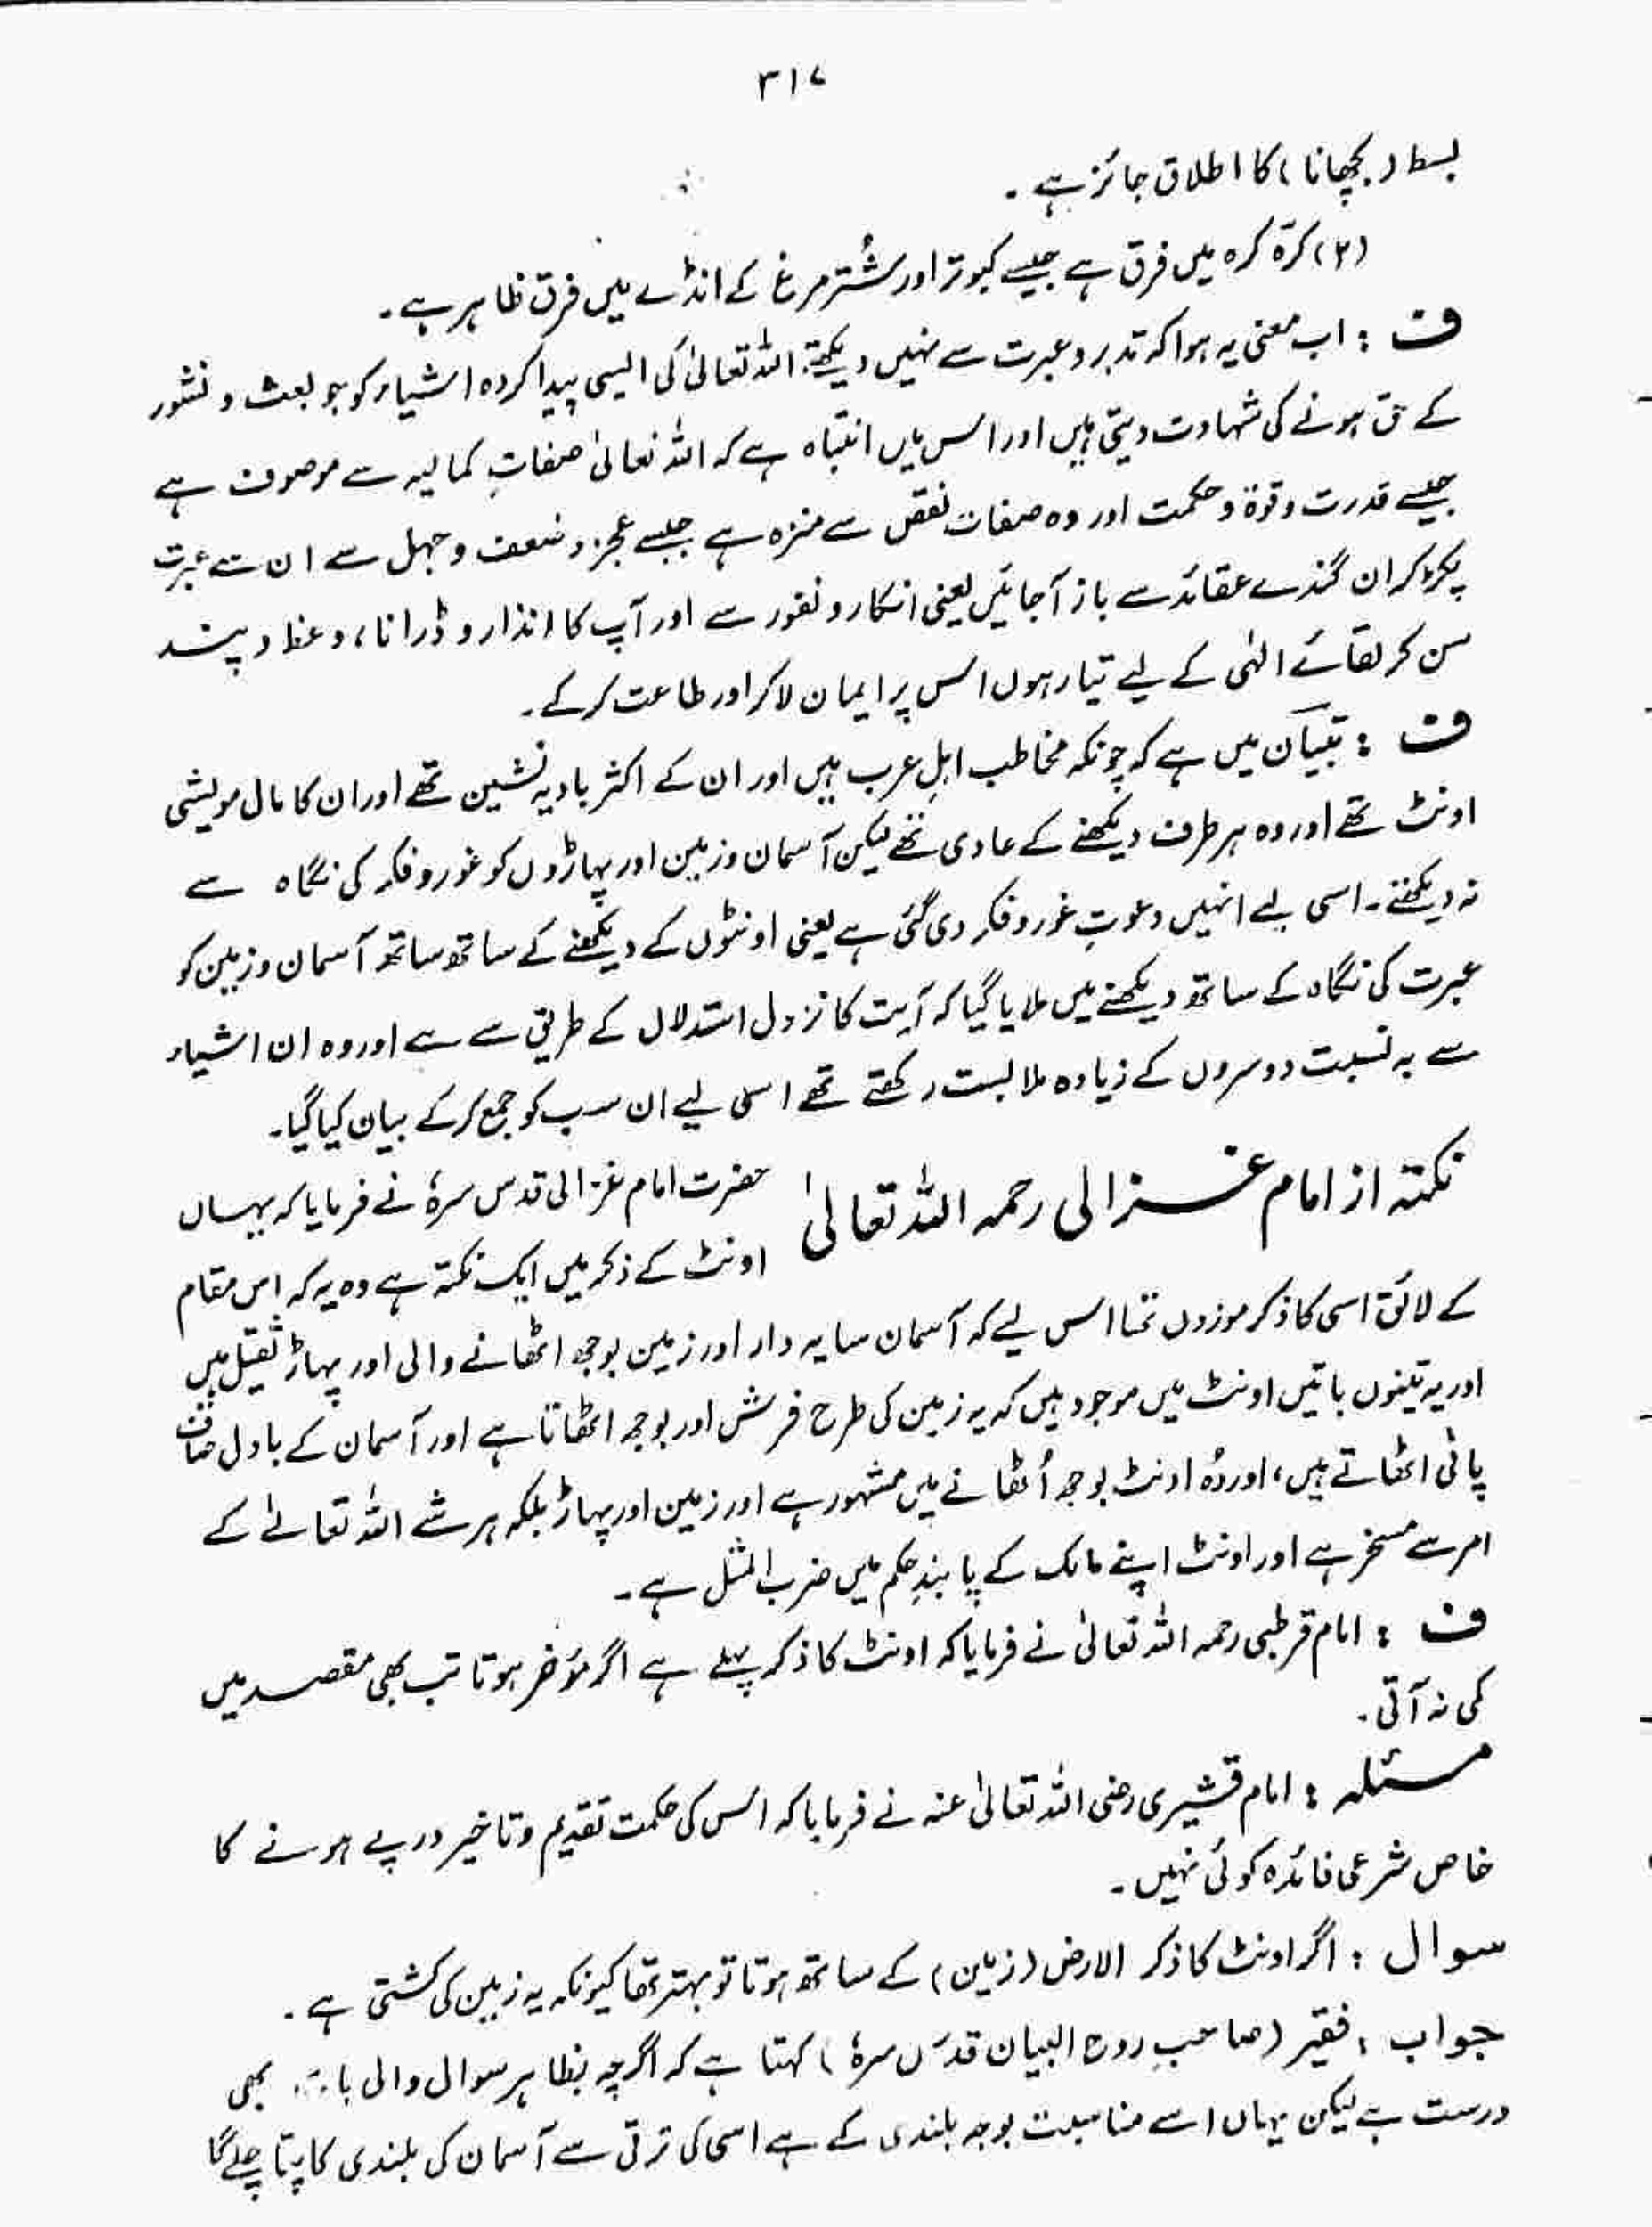 ۳۱۷
بسط (بچھانا) کا اطلاق جائز ہے۔
(۲) کرّہ کرہ میں فرق ہے جیسے کبوتر اور شُتر مرغ کے انڈے میں فرق ظاہر ہے۔
ف : اب معنی یہ ہوا کہ تدبر و عبرت سے نہیں دیکھتے اللہ تعالیٰ کی ایسی پیدا کردہ اشیاء کو جو بعث و نشور
کے حق ہونے کی شہادت دیتی ہیں اور اس میں انتباہ ہے کہ اللہ تعالیٰ صفاتِ کمالیہ سے موصوف ہے
جیسے قدرت و قوۃ و حکمت اور وہ صفات نقص سے منزہ ہے جیسے عجز و ضعف و جہل سے ان سے عبرت
پکڑ کر ان گندے عقائد سے باز آجائیں یعنی انکار و نفور سے اور آپ کا انذار و ڈرانا، وعظ و پند
سن کر لقائے الٰہی کے لیے تیار ہوں اس پر ایمان لاکر اور طاعت کرکے۔
ف : تبیان میں ہے کہ چونکہ مخاطب اہلِ عرب ہیں اور ان کے اکثر بادیہ نشین تھے اور ان کا مال مویشی
اونٹ تھے اور وہ ہر طرف دیکھنے کے عادی تھے لیکن آسمان و زمین اور پہاڑوں کو غور و فکر کی نگاہ سے
نہ دیکھتے۔ اسی لیے انہیں دعوتِ غور و فکر دی گئی ہے یعنی اونٹوں کے دیکھنے کے ساتھ ساتھ آسمان و زمین کو
عبرت کی نگاہ کے ساتھ دیکھنے میں ملایا گیا کہ آیت کا نزول استدلال کے طریق سے ہے اور وہ ان اشیاء
سے بہ نسبت دوسروں کے زیادہ ملابست رکھتے تھے اسی لیے ان سب کو جمع کرکے بیان کیا گیا۔
نکتہ از امام غزالی رحمہ اللہ تعالیٰ حضرت امام غزالی قدس سرہٗ نے فرمایا کہ یہاں
اونٹ کے ذکر میں ایک نکتہ ہے وہ یہ کہ اس مقام
کے لائق اسی کا ذکر موزوں تھا اس لیے کہ آسمان سایہ دار اور زمین بوجھ اٹھانے والی اور پہاڑ ثقیل ہیں
اور یہ تینوں باتیں اونٹ میں موجود ہیں کہ یہ زمین کی طرح فرش اور بوجھ اٹھاتا ہے اور آسمان کے بادل صاف
پانی اٹھاتے ہیں، اور وُہ اونٹ بوجھ اُٹھانے میں مشہور ہے اور زمین اور پہاڑ بلکہ ہر شے اللہ تعالےٰ کے
امر سے مسخر ہے اور اونٹ اپنے مالک کے پابندِ حکم میں ضرب المثل ہے۔
ف : امام قرطبی رحمہ اللہ تعالیٰ نے فرمایا کہ اونٹ کا ذکر پہلے ہے اگر مؤخر ہوتا تب بھی مقصد میں
کمی نہ آتی۔
مسئلہ : امام قشیری رضی اللہ تعالیٰ عنہ نے فرمایا کہ اس کی حکمت تقدیم و تاخیر درپے ہونے کا
خاص شرعی فائدہ کوئی نہیں۔
سوال : اگر اونٹ کا ذکر الارض (زمین) کے ساتھ ہوتا تو بہتر تھا کیونکہ یہ زمین کی کشتی ہے۔
جواب : فقیر (صاحبِ روح البیان قدّس سرہٗ) کہتا ہے کہ اگرچہ بظاہر سوال والی بات بھی
درست ہے لیکن یہاں اسے مناسبت بوجہ بلندی کے ہے اسی کی ترقی سے آسمان کی بلندی کا پتا چلے گا